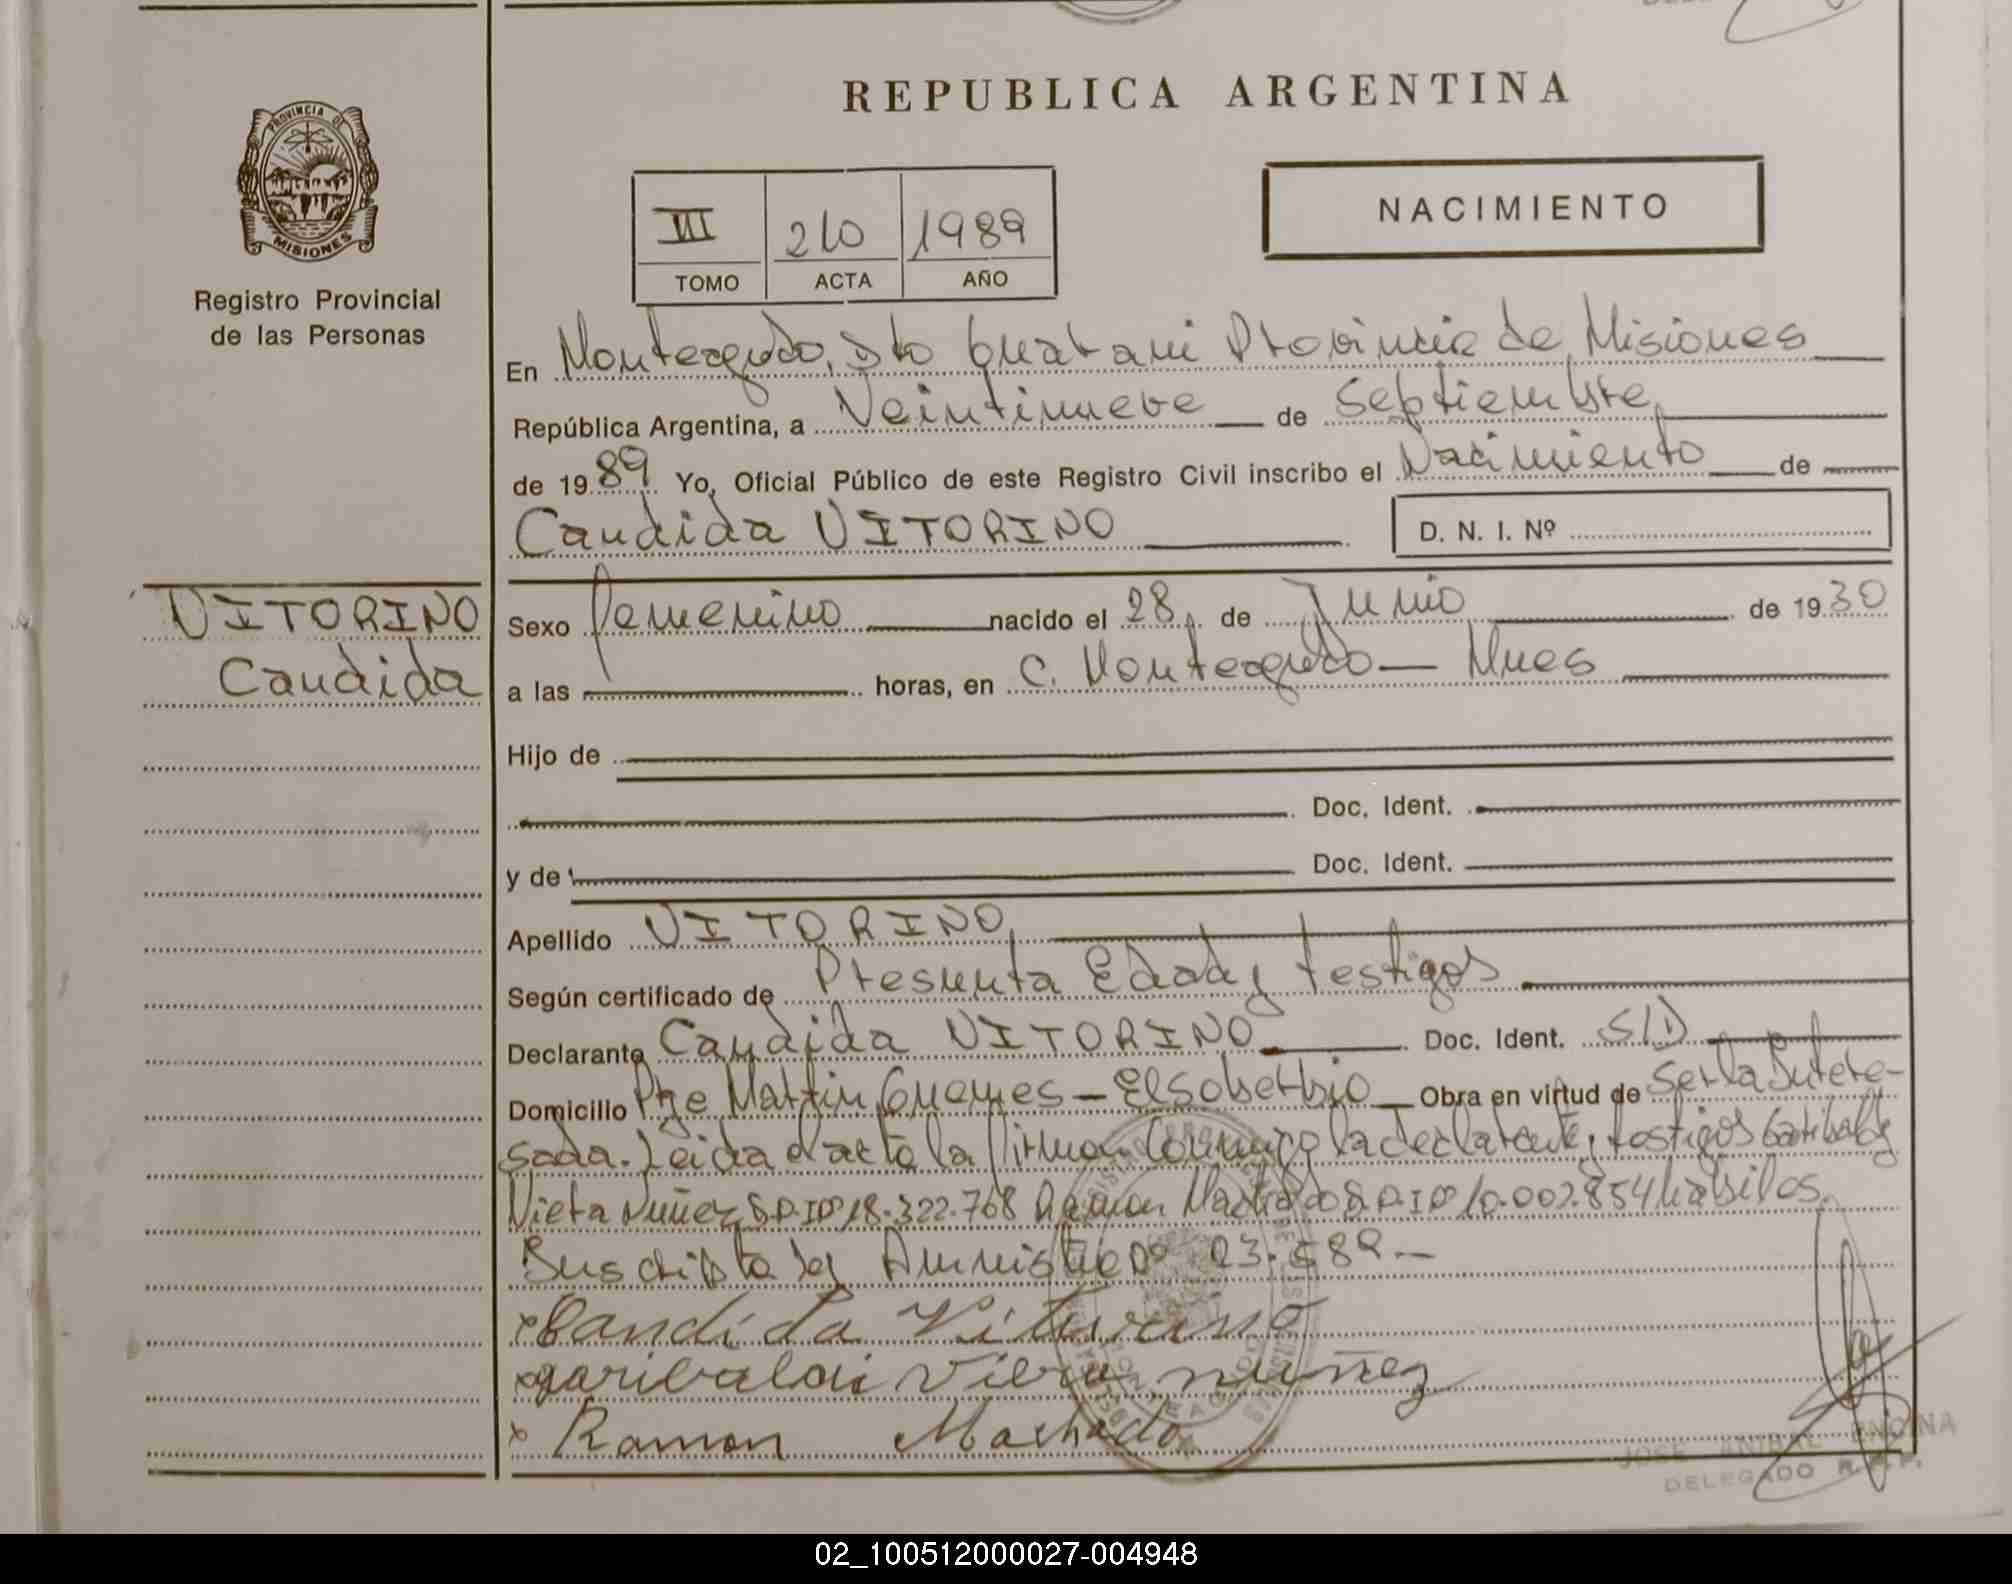 REPUBLICA ARGENTINA
PROVINCIA DE
MISIONES
Registro Provincial
de las Personas
VII 210 1989
TOMO ACTA AÑO
NACIMIENTO
En Monteagudo, Dto Guarani Provincia de Misiones
República Argentina, a Veintinueve de Septiembre,
de 1989 Yo, Oficial Público de este Registro Civil inscribo el Nacimiento de
Candida VITORINO D. N. I. Nº
VITORINO
Candida
Sexo femenino nacido el 28, de Junio de 1930
a las horas, en C. Monteagudo - Mnes
Hijo de
Doc. Ident.
y de Doc. Ident.
Apellido VITORINO,
Según certificado de Presunta Edad y testigos
Declarante Candida VITORINO Doc. Ident. S/D
Domicilio Pje Martin Guemes - El Soberbio Obra en virtud de Ser la Intere-
sada. Leida el acta la firman Conmigo la declarante, testigos Garibaldi
Vieta Nuñez D.N.I Nº 18.322.768 Ramon Machado D.N.I Nº 10.002.854 habiles.
Suscripta Ley Amnistia Nº 23.
Candida Vitorino
garibaldi Viera nuñez
Ramon Machado
JOSE ANIBAL ENCINA
DELEGADO R.P.P.
02_100512000027-004948